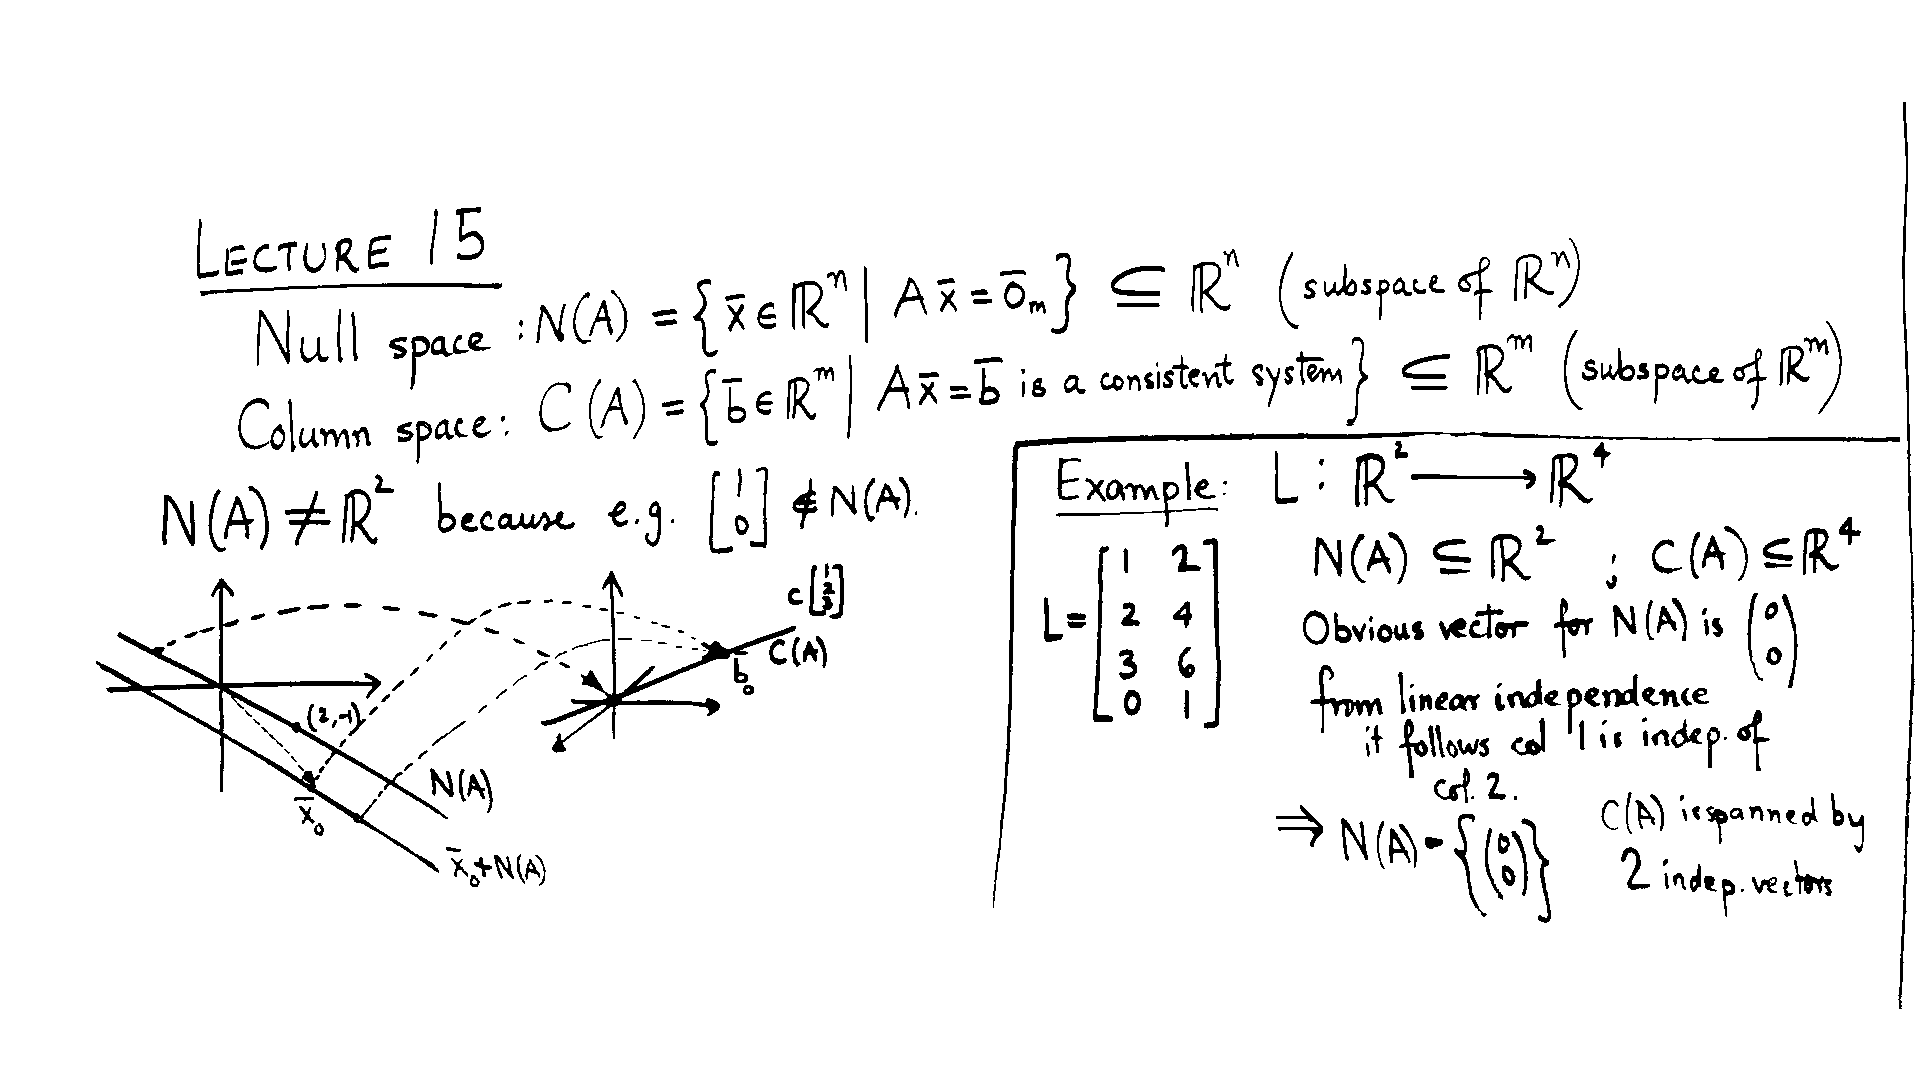 LECTURE 15
Null space : N(A) = { x̄ ∈ ℝⁿ | A x̄ = ō_m } ⊆ ℝⁿ (subspace of ℝⁿ)
Column space : C(A) = { b̄ ∈ ℝᵐ | A x̄ = b̄ is a consistent system } ⊆ ℝᵐ (subspace of ℝᵐ)
N(A) ≠ ℝ² because e.g. [1 0] ∉ N(A).
c [1 2 3]
C(A)
b̄₀
(2,-1)
N(A)
x̄₀
x̄₀+N(A)
Example: L : ℝ² ⟶ ℝ⁴
N(A) ⊆ ℝ² ; C(A) ⊆ ℝ⁴
L = [1 2
2 4
3 6
0 1]
Obvious vector for N(A) is (0 0)
from linear independence
it follows col 1 is indep. of
col. 2.
⇒ N(A) = {(0 0)}
C(A) is spanned by
2 indep. vectors